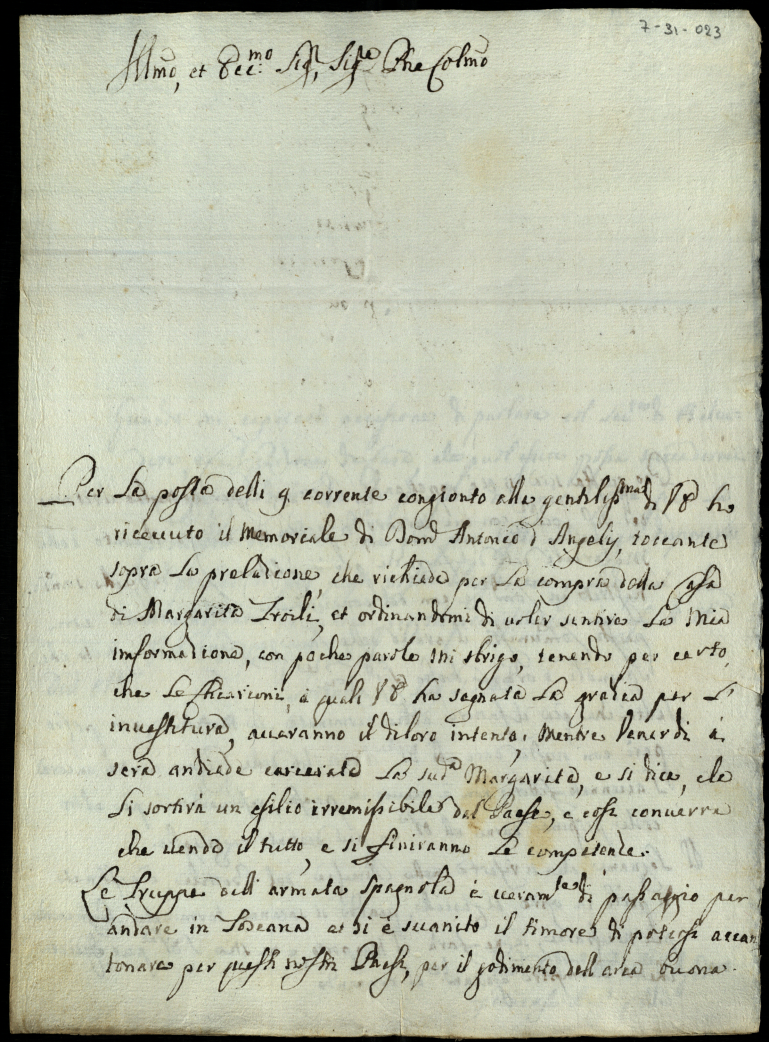 7-31-023
Illmo, et Ecc:mo Sig, Sigre Pne Colmo
Per La posta delli 9 corrente congionto alla gentilissma di VE ho
riceuuto il Memoriale di Domo Antonio d'Angelij, toccante
sopra La prelazione, che richiede per La compra della Casa
di Margarita Troili, et ordinandomi di uoler sentire La Mia
informazione, con poche parole mi sbrigo, tenendo per certo,
che Le, à quali VE ha segnata La grazia per L'
inuestitura, aueranno il di loro intento, Mentre Venerdi à
sera andiede carcerata La suda Margarita, e si dice, che
Li sortirà un esilio irremissibile dal Paese, e così conuerrà
che uenda il tutto, e si finiranno Le competenze.
Le Truppe dell'armata spagnola è ueramte di passaggio per
andare in Toscana et si è suanito il timore di potersi accan
tonare per questi nostri Paesi, per il godimento dell'area buona.